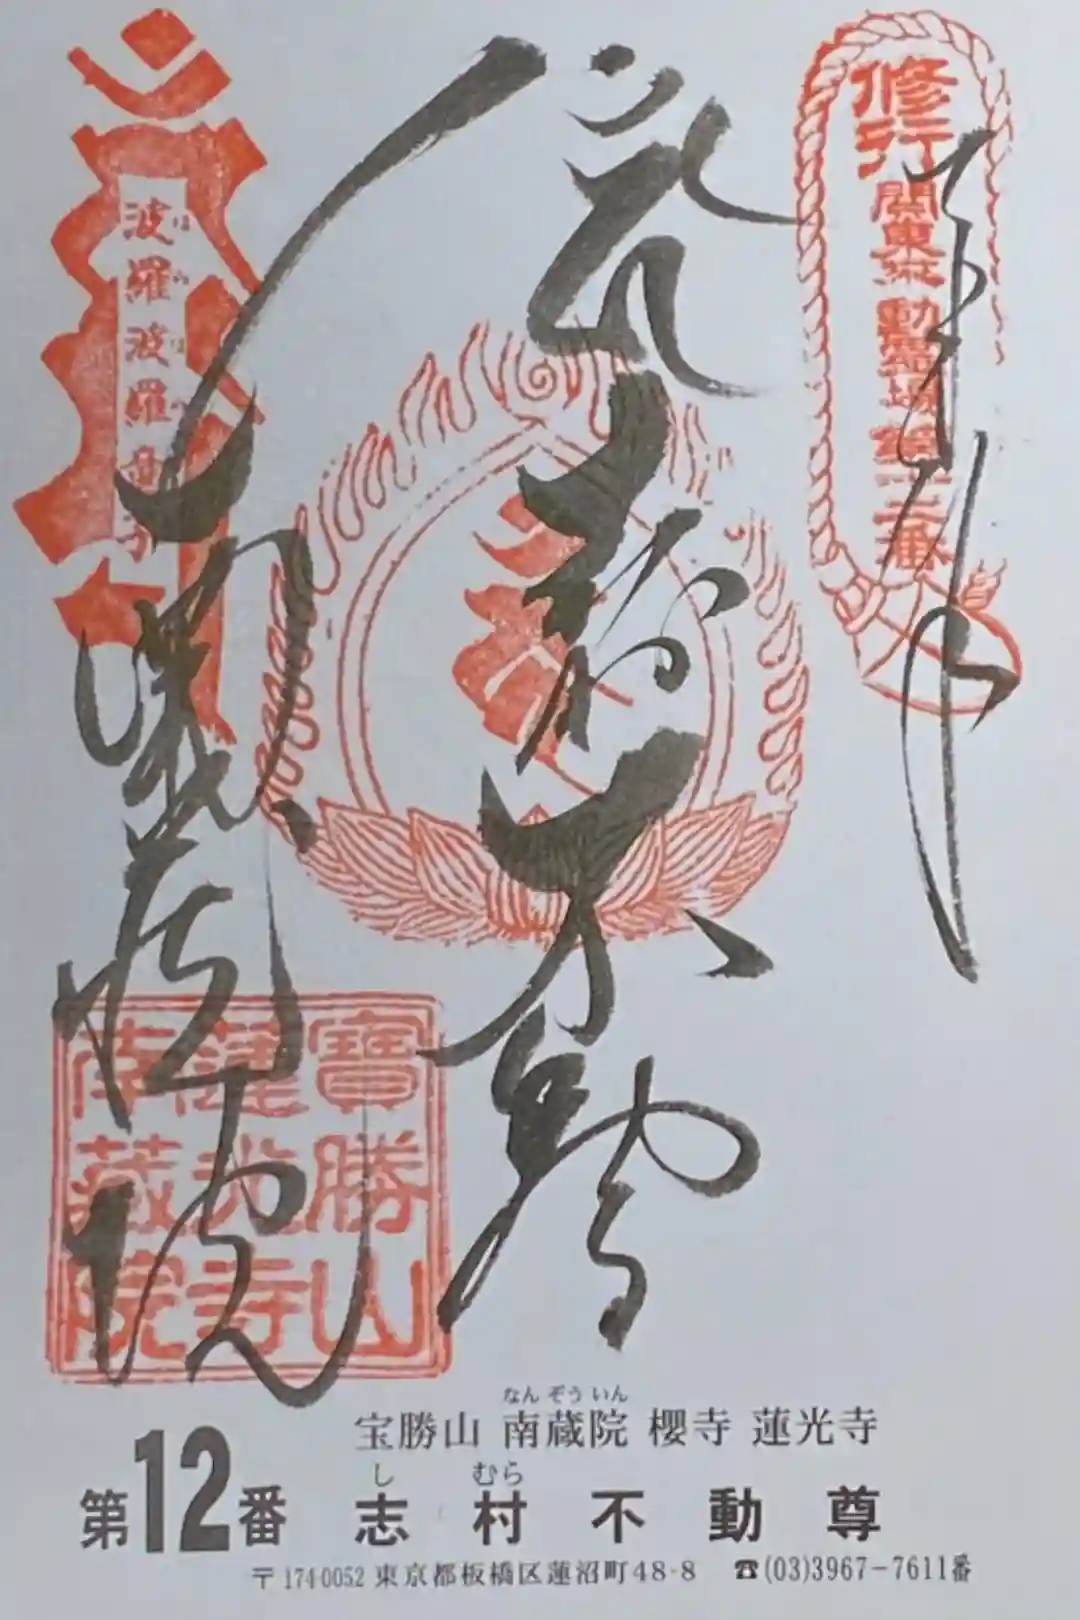 修行
関東三十六不動霊場第十二番
志村不動
南蔵院
波羅波羅童子
はらはら
寶勝山
蓮光寺
南蔵院
なんぞういん
宝勝山 南蔵院 櫻寺 蓮光寺
しむら
第12番 志村不動尊
〒174-0052 東京都板橋区蓮沼町48-8 ☎(03)3967-7611番